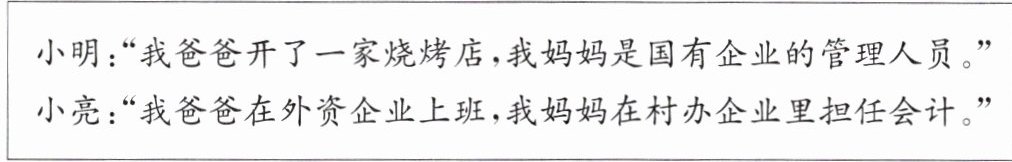 小明:“我爸爸开了一家烧烤店,我妈妈是国有企业的管理人员。”
小亮:“我爸爸在外资企业上班,我妈妈在村办企业里担任会计。”